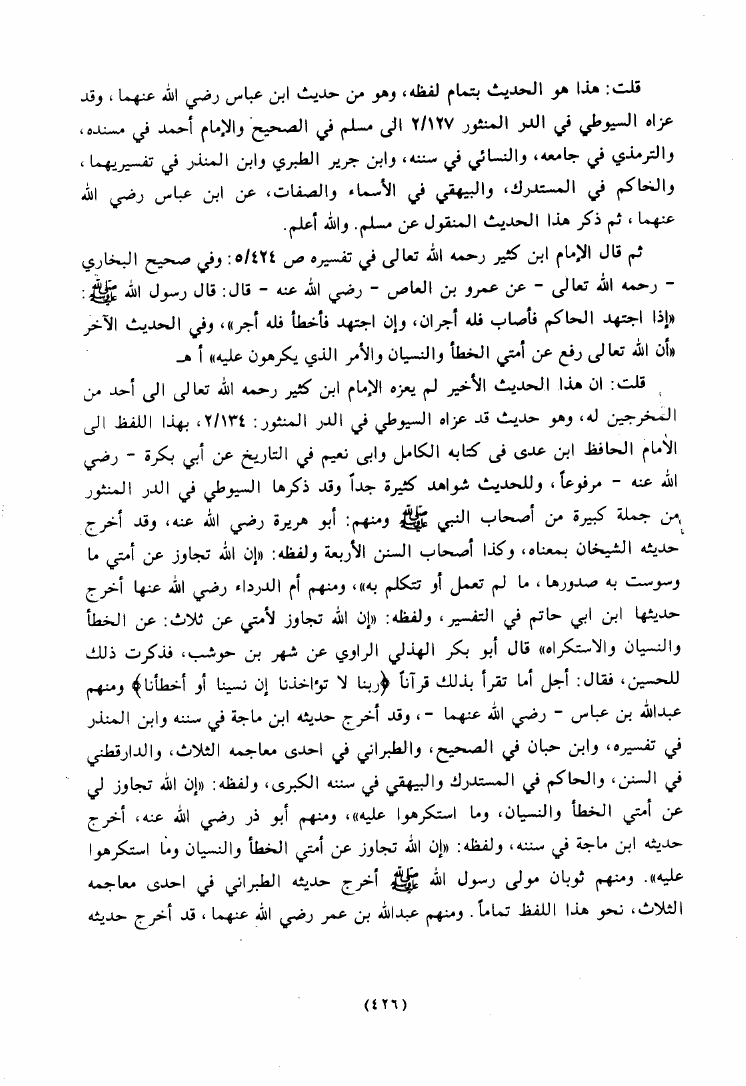 قلت: هذا هو الحديث بتمام لفظه، وهو من حديث ابن عباس رضي الله عنهما، وقد
عزاه السيوطي في الدر المنثور ٢/١٢٧ الى مسلم في الصحيح والإمام أحمد في مسنده،
والترمذي في جامعه، والنسائي في سننه، وابن جرير الطبري وابن المنذر في تفسيريهما،
والحاكم في المستدرك، والبيهقي في الأسماء والصفات، عن ابن عباس رضي الله
عنهما، ثم ذكر هذا الحديث المنقول عن مسلم. والله أعلم.
ثم قال الإمام ابن كثير رحمه الله تعالى في تفسيره ص ٥/٤٢٤: وفي صحيح البخاري
- رحمه الله تعالى - عن عمرو بن العاص - رضي الله عنه - قال: قال رسول الله ﷺ:
«إذا اجتهد الحاكم فأصاب فله أجران، وإن اجتهد فأخطأ فله أجر»، وفي الحديث الآخر
«أن الله تعالى رفع عن أمتي الخطأ والنسيان والأمر الذي يكرهون عليه» أ هـ
قلت: ان هذا الحديث الأخير لم يعزه الإمام ابن كثير رحمه الله تعالى الى أحد من
المخرجين له، وهو حديث قد عزاه السيوطي في الدر المنثور: ٢/١٣٤، بهذا اللفظ الى
الأمام الحافظ ابن عدى فى كتابه الكامل وابى نعيم في التاريخ عن أبي بكرة - رضي
الله عنه - مرفوعاً، وللحديث شواهد كثيرة جداً وقد ذكرها السيوطي في الدر المنثور
من جملة كبيرة من أصحاب النبي ﷺ ومنهم: أبو هريرة رضي الله عنه، وقد أخرج
حديثه الشيخان بمعناه، وكذا أصحاب السنن الأربعة ولفظه: «إن الله تجاوز عن أمتي ما
وسوست به صدورها، ما لم تعمل أو تتكلم به»، ومنهم أم الدرداء رضي الله عنها أخرج
حديثها ابن ابي حاتم في التفسير، ولفظه: «إن الله تجاوز لأمتي عن ثلاث: عن الخطأ
والنسيان والاستكراه» قال أبو بكر الهذلي الراوي عن شهر بن حوشب، فذكرت ذلك
للحسين، فقال: أجل أما تقرأ بذلك قرآناً ﴿ربنا لا تؤاخذنا إن نسينا أو أخطأنا﴾ ومنهم
عبدالله بن عباس - رضي الله عنهما -، وقد أخرج حديثه ابن ماجة في سننه وابن المنذر
في تفسيره، وابن حبان في الصحيح، والطبراني في احدى معاجمه الثلاث، والدارقطني
في السنن، والحاكم في المستدرك والبيهقي في سننه الكبرى، ولفظه: «إن الله تجاوز لي
عن أمتي الخطأ والنسيان، وما استكرهوا عليه»، ومنهم أبو ذر رضي الله عنه، أخرج
حديثه ابن ماجة في سننه، ولفظه: «إن الله تجاوز عن أمتي الخطأ والنسيان وما استكرهوا
عليه». ومنهم ثوبان مولى رسول الله ﷺ أخرج حديثه الطبراني في احدى معاجمه
الثلاث، نحو هذا اللفظ تماماً. ومنهم عبدالله بن عمر رضي الله عنهما، قد أخرج حديثه
(٤٢٦)